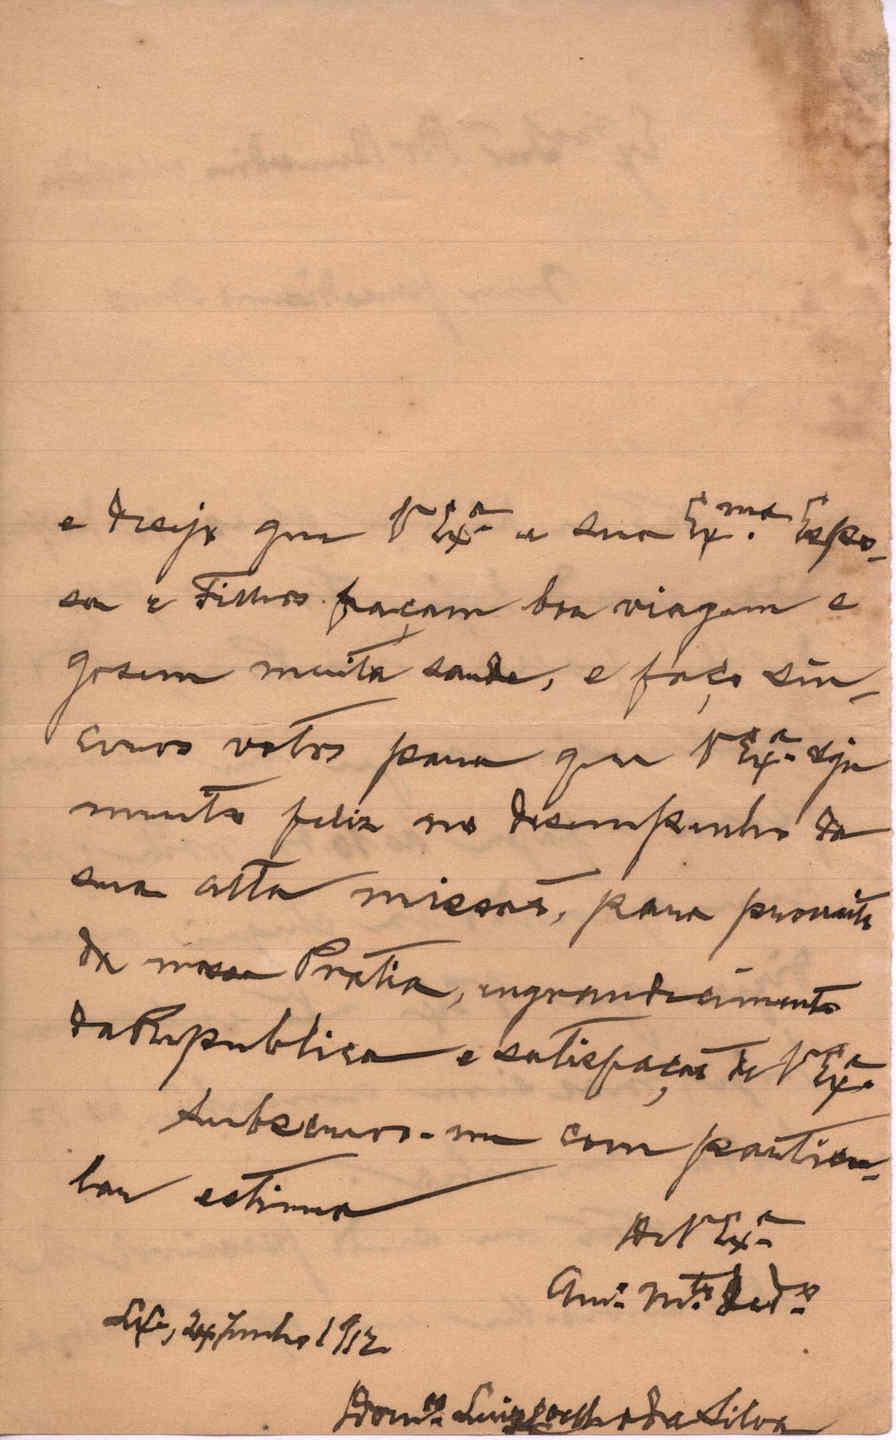 e desejo que V Exª e sua Exma. Espo-
sa e Filhos façam boa viagem e
gosem muita saude, e faço sin-
ceros votos para que V Exª seja
muito feliz no desempenho da
sua alta missão, para proveito
da nossa Patria, engrandecimento
da Republica e satisfação de V Exª.
Subscrevo-me com particu-
lar estima
De V Exª
Amº. Mtº. Dedº.
Lxª, 24 Junho 1912
Domºs Luiz Coelho da Silva